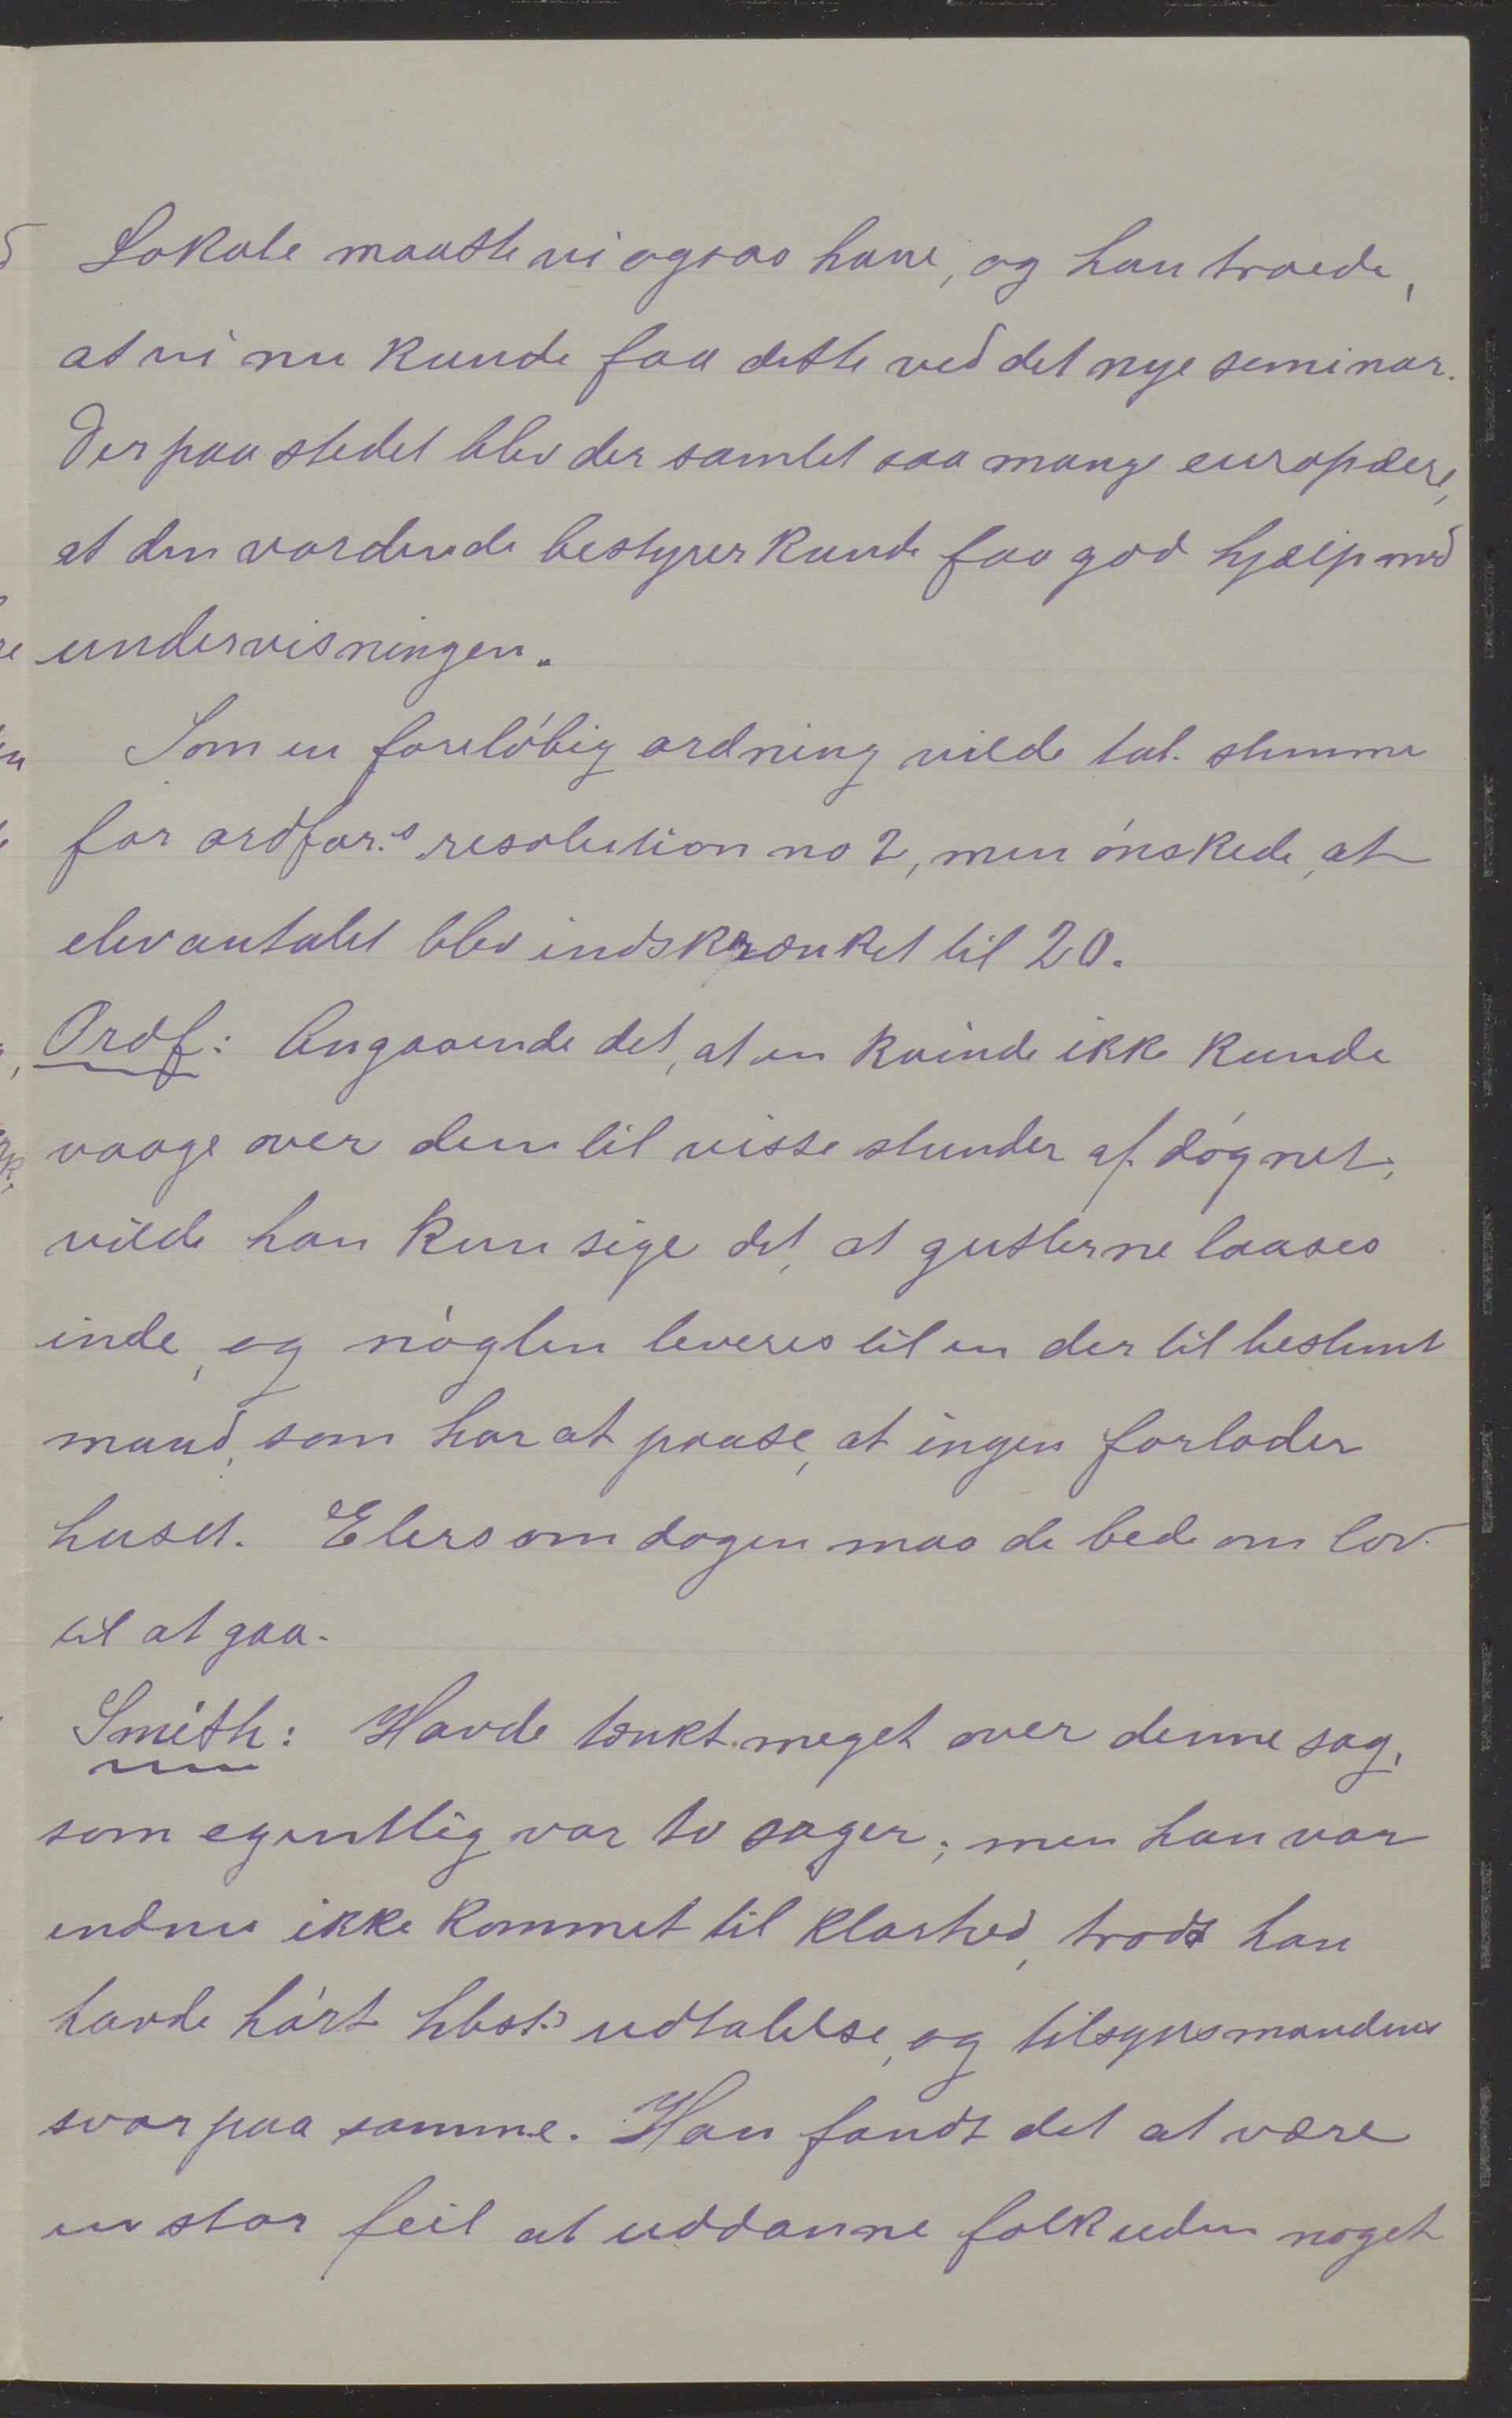 Lokale maatte vi ogsaa have, og han troede,
at vi nu kunde faa dette ved det nye seminar.
Der paa stedet blev der samlet saa mange europæere,
at den vordende bestyrer kunde faa god hjælp med
undervisningen.
Som en foreløbig ordning vilde tal. stemme
for ordfør:s resolution no 2, men ønskede, at
elevantalet blev indskrænket til 20.
Ordf: Angaaende det, at en kvinde ikke kunde
vaage over dem til visse stunder af døgnet,
vilde han kun sige det, at gutterne laases
inde, og nøglen leveres til en der til bestemt
mand, som har at paase, at ingen forlader
huset. Elers om dagen maa de bede om lov
til at gaa.
Smith: Havde tænkt meget over denne sag,
som egentlig var to sager; men han var
endnu ikke kommet til klarhed, trods han
havde hørt hbst:s udtalelse, og tilsynsmandens
svar paa samme. Han fandt det at være
en stor feil at uddanne folk uden noget